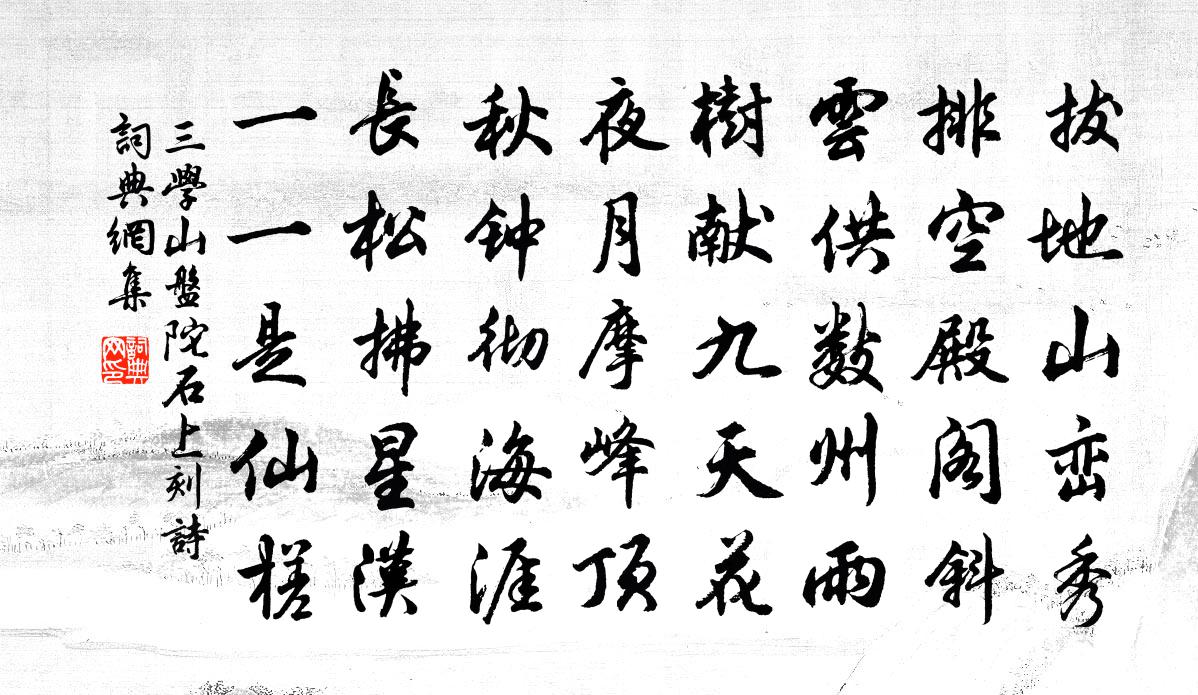 拔地山峦秀
排空殿阁斜
雲供数州雨
樹献九天花
夜月摩峰顶
秋钟彻海涯
長松拂星漢
一一是仙槎
三學山盤陀石上刻詩
詞典網集